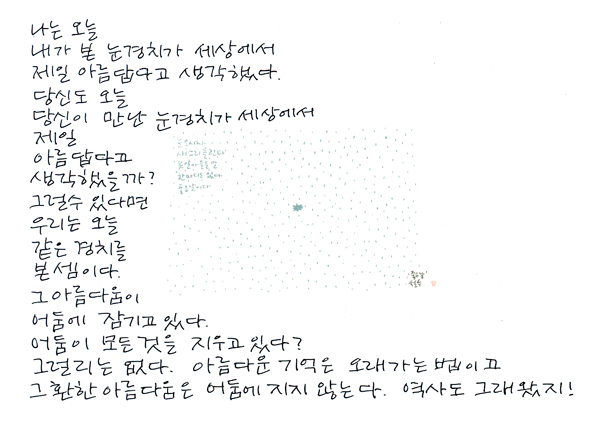 나는 오늘
내가 본 눈경치가 세상에서
제일 아름답다고 생각했다.
당신도 오늘
당신이 만난 눈경치가 세상에서
제일
아름답다고
생각했을까?
그럴수 있다면
우리는 오늘
같은 경치를
본 셈이다.
그 아름다움이
어둠에 잠기고 있다.
어둠이 모든 것을 지우고 있다?
그럴리는 없다. 아름다운 기억은 오래가는 법이고
그 환한 아름다움은 어둠에 지지 않는다. 역사도 그래왔지!